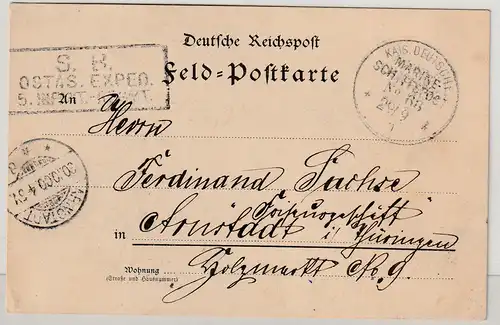 Deutsche Reichspost
Feld-Postkarte
S. B.
OSTAS. EXPED.
5. INFANT.
KAIS. DEUTSCHE
MARINE-
SCHIFFSPOST
No 66
29/9
An
Herrn
Ferdinand Sachse
Friseurgeschäft
in Arnstadt i/Thüringen
Wohnung
(Straße und Hausnummer)
Holzmarkt No. 9.
ARNSTADT